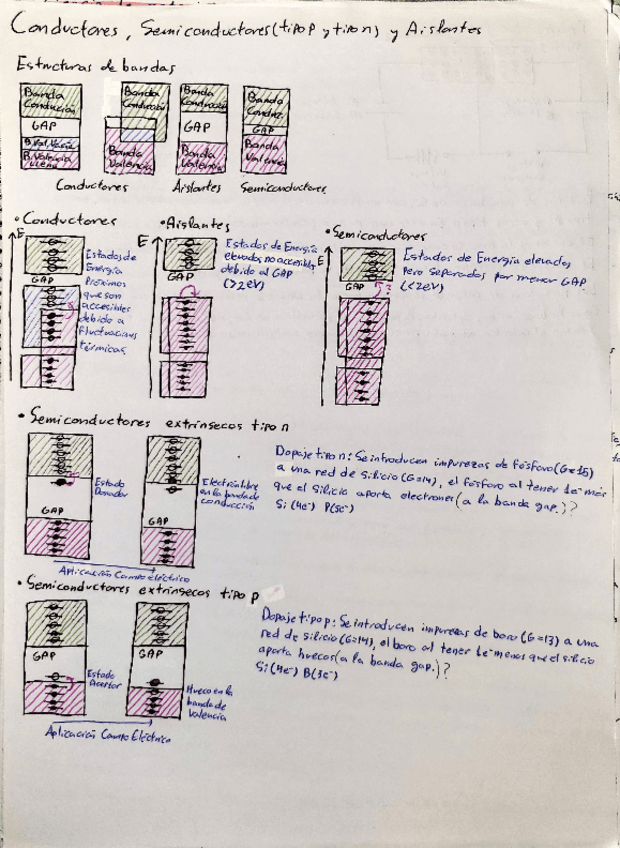 Conductores, Semiconductores (tipo p y tipo n) y Aislantes
Estructuras de bandas
Banda
Conducción
GAP
B. Val. Vacía
B. Valencia
Llena
Banda
Conducción
Banda
Valencia
Banda
Conducción
GAP
Banda
Valencia
Banda
Conducc.
GAP
Banda
Valencia
Conductores
Aislantes
Semiconductores
• Conductores
E
GAP
Estados de
Energía
Próximos
que son
accesibles
debido a
fluctuaciones
térmicas
• Aislantes
E
GAP
Estados de Energía
elevados no accesibles
debido al GAP
(>2eV)
• Semiconductores
E
GAP
?
Estados de Energía elevados
pero separados por menor GAP
(<2eV)
• Semiconductores extrínsecos tipo n
GAP
Estado
Donador
GAP
Electrón libre
en la banda de
conducción
Aplicación Campo eléctrico
Dopaje tipo n: Se introducen impurezas de fósforo (G=15)
a una red de silicio (G=14), el fósforo al tener 1e⁻ más
que el silicio aporta electrones (a la banda gap.)?
Si (4e⁻) P(5e⁻)
• Semiconductores extrínsecos tipo p
GAP
Estado
Aceptor
GAP
Hueco en la
banda de
Valencia
Aplicación Campo Eléctrico
Dopaje tipo p: Se introducen impurezas de boro (G=13) a una
red de silicio (G=14), el boro al tener 1e⁻ menos que el silicio
aporta huecos (a la banda gap.)?
Si (4e⁻) B(3e⁻)